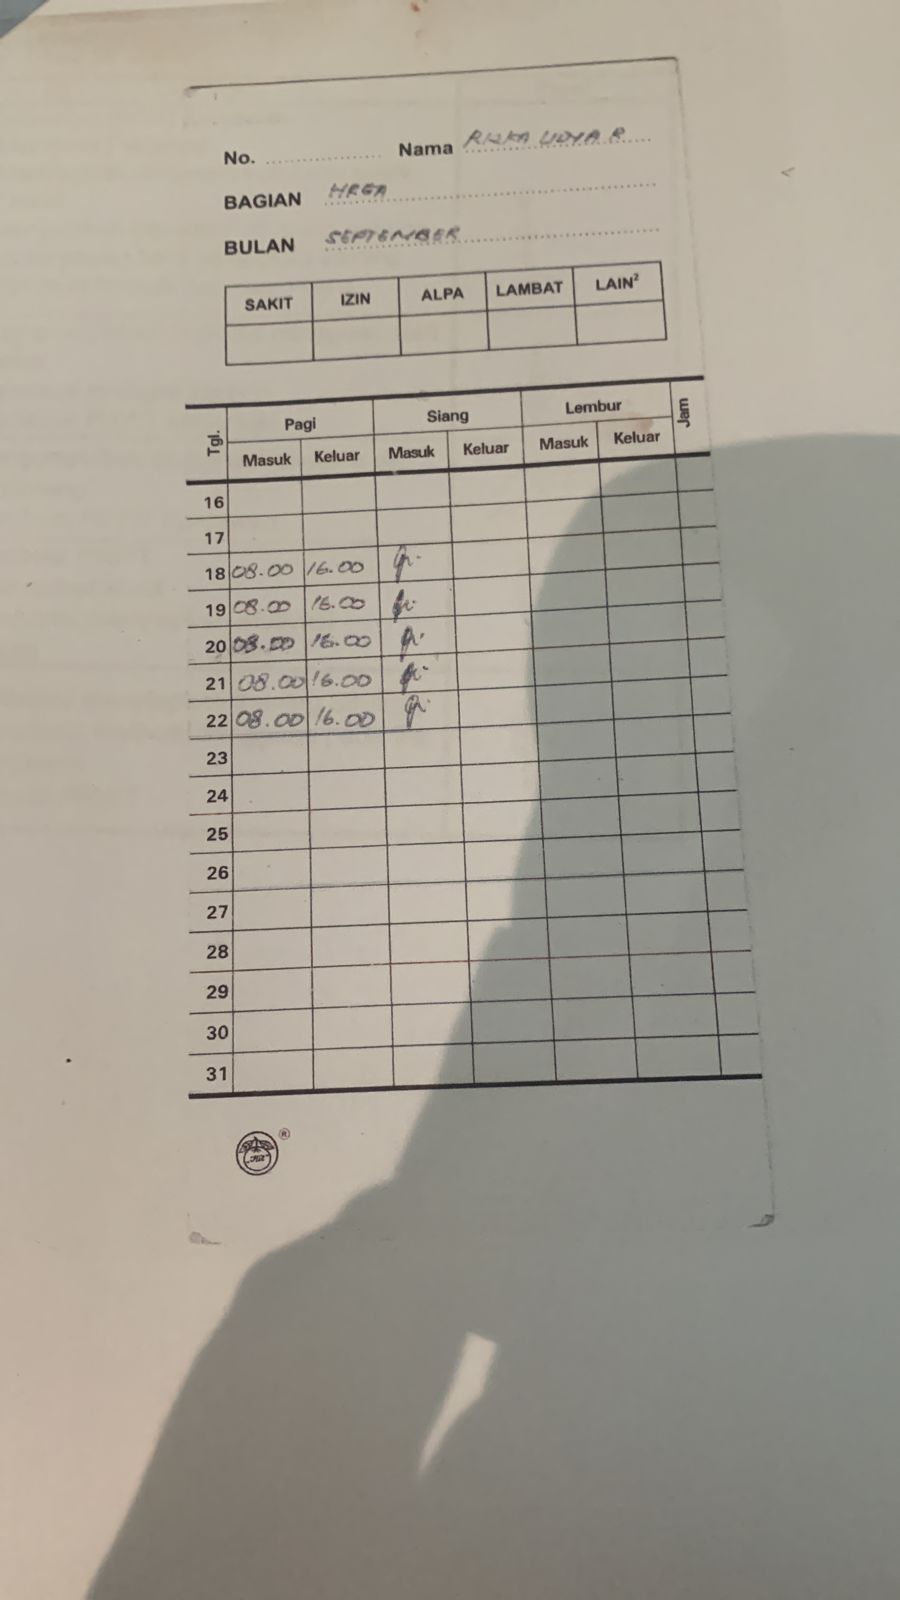 No. Nama RIZKA UDYA R
BAGIAN HRGA
BULAN SEPTEMBER
SAKIT IZIN ALPA LAMBAT LAIN²
Tgl. Pagi Siang Lembur Jam
Masuk Keluar Masuk Keluar Masuk Keluar
16
17
18 08.00 16.00
19 08.00 16.00
20 08.00 16.00
21 08.00 16.00
22 08.00 16.00
23
24
25
26
27
28
29
30
31
®